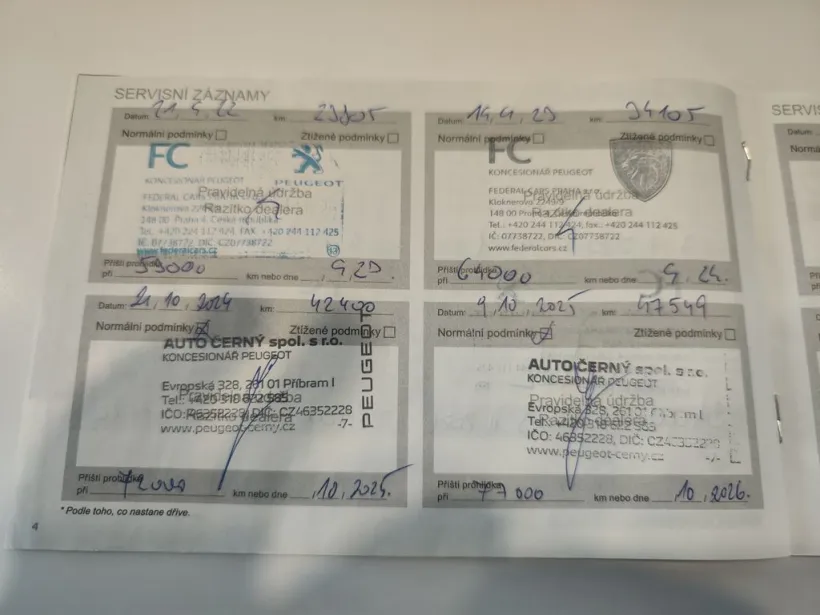 SERVISNÍ ZÁZNAMY
Datum: 21, 4, 22 km:
Normální podmínky Ztížené podmínky
FC
KONCESIONÁŘ PEUGEOT
PEUGEOT
Pravidelná údržba
Razítko dealera
FEDERAL CARS PRAHA s.r.o.
148 00 Praha 4, Česká republika
Tel.: +420 244 112 424, FAX: +420 244 112 425
IČ: 07738722, DIČ: CZ07738722
www.federalcars.cz
Příští prohlídka
při 59000 km nebo dne 4, 23.
Datum: 14, 4, 23 km: 34105
Normální podmínky Ztížené podmínky
FC
KONCESIONÁŘ PEUGEOT
Pravidelná údržba
Razítko dealera
FEDERAL CARS PRAHA s.r.o.
Klóknerova 2249/9
148 00 Praha
Tel.: +420 244 112 424, fax: +420 244 112 425
IČ: 07738722, DIČ: CZ07738722
www.federalcars.cz
Příští prohlídka
při 64000 km nebo dne 4, 24.
Datum: 21, 10, 2024 km: 42400
Normální podmínky Ztížené podmínky
AUTO ČERNÝ spol. s r.o.
KONCESIONÁŘ PEUGEOT
PEUGEOT
Evropská 328, 261 01 Příbram I
Pravidelná údržba
Razítko dealera
IČO: 46352228, DIČ: CZ46352228
www.peugeot-cerny.cz -7-
Příští prohlídka
při 72000 km nebo dne 10, 2025.
Datum: 9, 10, 2025 km: 47549
Normální podmínky Ztížené podmínky
AUTO ČERNÝ spol. s r.o.
KONCESIONÁŘ PEUGEOT
Pravidelná údržba
Razítko dealera
Evropská 328, 261 01 Příbram I
IČO: 46352228, DIČ: CZ46352228
www.peugeot-cerny.cz
Příští prohlídka
při 77000 km nebo dne 10, 2026.
* Podle toho, co nastane dříve.
4
SERVIS
Datum: